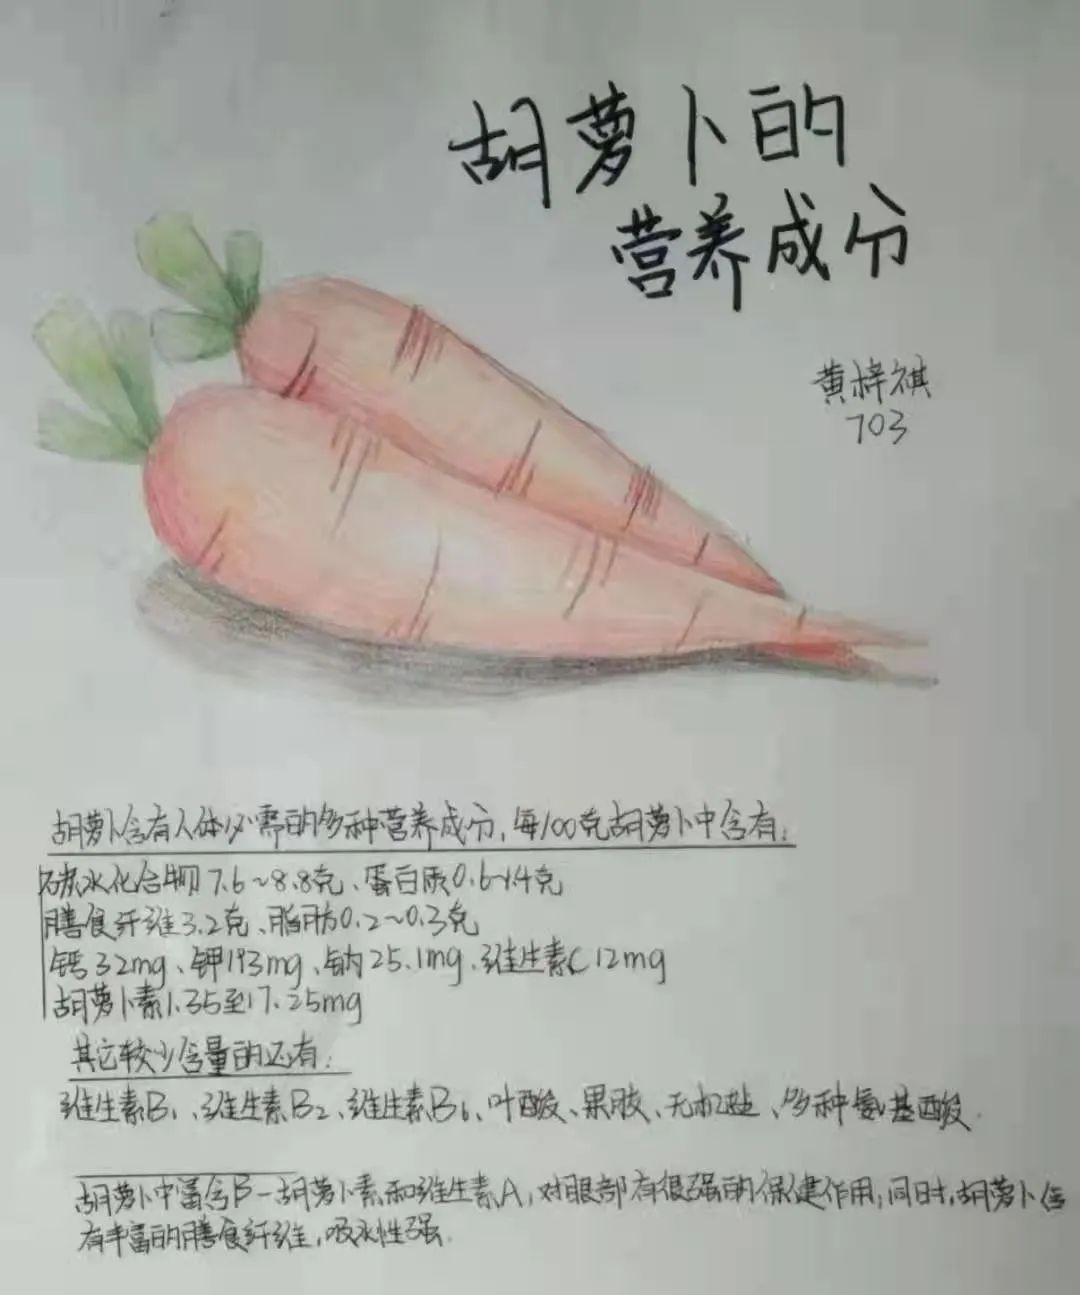 胡萝卜的
营养成分
黄梓祺
703
胡萝卜含有人体必需的多种营养成分,每100克胡萝卜中含有:
碳水化合物7.6~8.8克、蛋白质0.6~1.4克
膳食纤维3.2克、脂肪0.2~0.3克
钙32mg、钾193mg、钠25.1mg、维生素C12mg
胡萝卜素1.35至17.25mg
其它较少含量的还有:
维生素B1、维生素B2、维生素B6、叶酸、果胶、无机盐、多种氨基酸.
胡萝卜中富含β-胡萝卜素和维生素A,对眼部有很强的保健作用;同时,胡萝卜含
有丰富的膳食纤维,吸水性强.